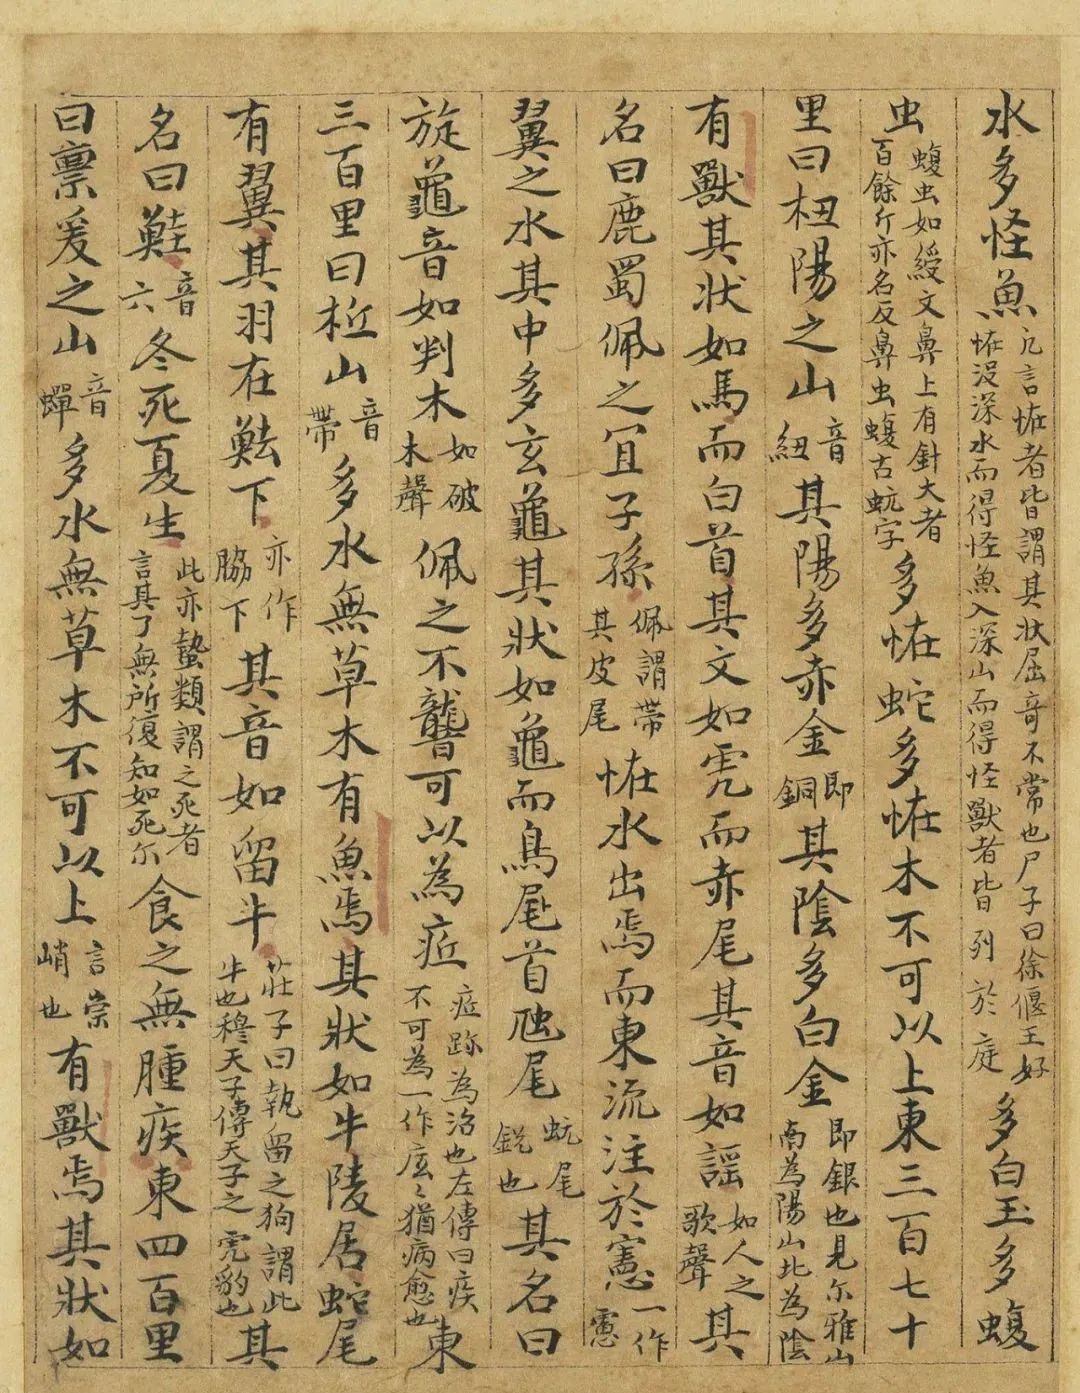 水多怪魚凢言恠者皆謂其狀屈竒不常也尸子曰徐偃王好恠没深水而得怪魚入深山而得怪獸者皆列於庭多白玉多蝮
虫蝮虫如綬文鼻上有針大者百餘斤亦名反鼻虫蝮古蚖字多恠蛇多恠木不可以上東三百七十
里曰杻陽之山音紐其陽多赤金即銅其陰多白金即銀也見尓雅山南為陽山北為陰
有獸其狀如馬而白首其文如虎而赤尾其音如謡如人之歌聲其
名曰鹿蜀佩之冝子孫佩謂帶其皮尾恠水出焉而東流注於憲一作㥣
翼之水其中多玄龜其狀如龜而鳥尾首虺尾蚖尾鋭也其名曰
旋龜音如判木如破木聲佩之不聾可以為疷疷跡為治也左傳曰疾不可為一作庢〻猶病愈也東
三百里曰柢山音帶多水無草木有魚焉其狀如牛陵居蛇尾
有翼其羽在魼下亦作脇下其音如留牛莊子曰執留之狗謂此牛也穆天子傳天子之虎豹也其
名曰鯥音六冬死夏生此亦蟄類謂之死者言其了無所復知如死尓食之無腫疾東四百里
曰亶爰之山音蟬多水無草木不可以上言崇峭也有獸焉其狀如